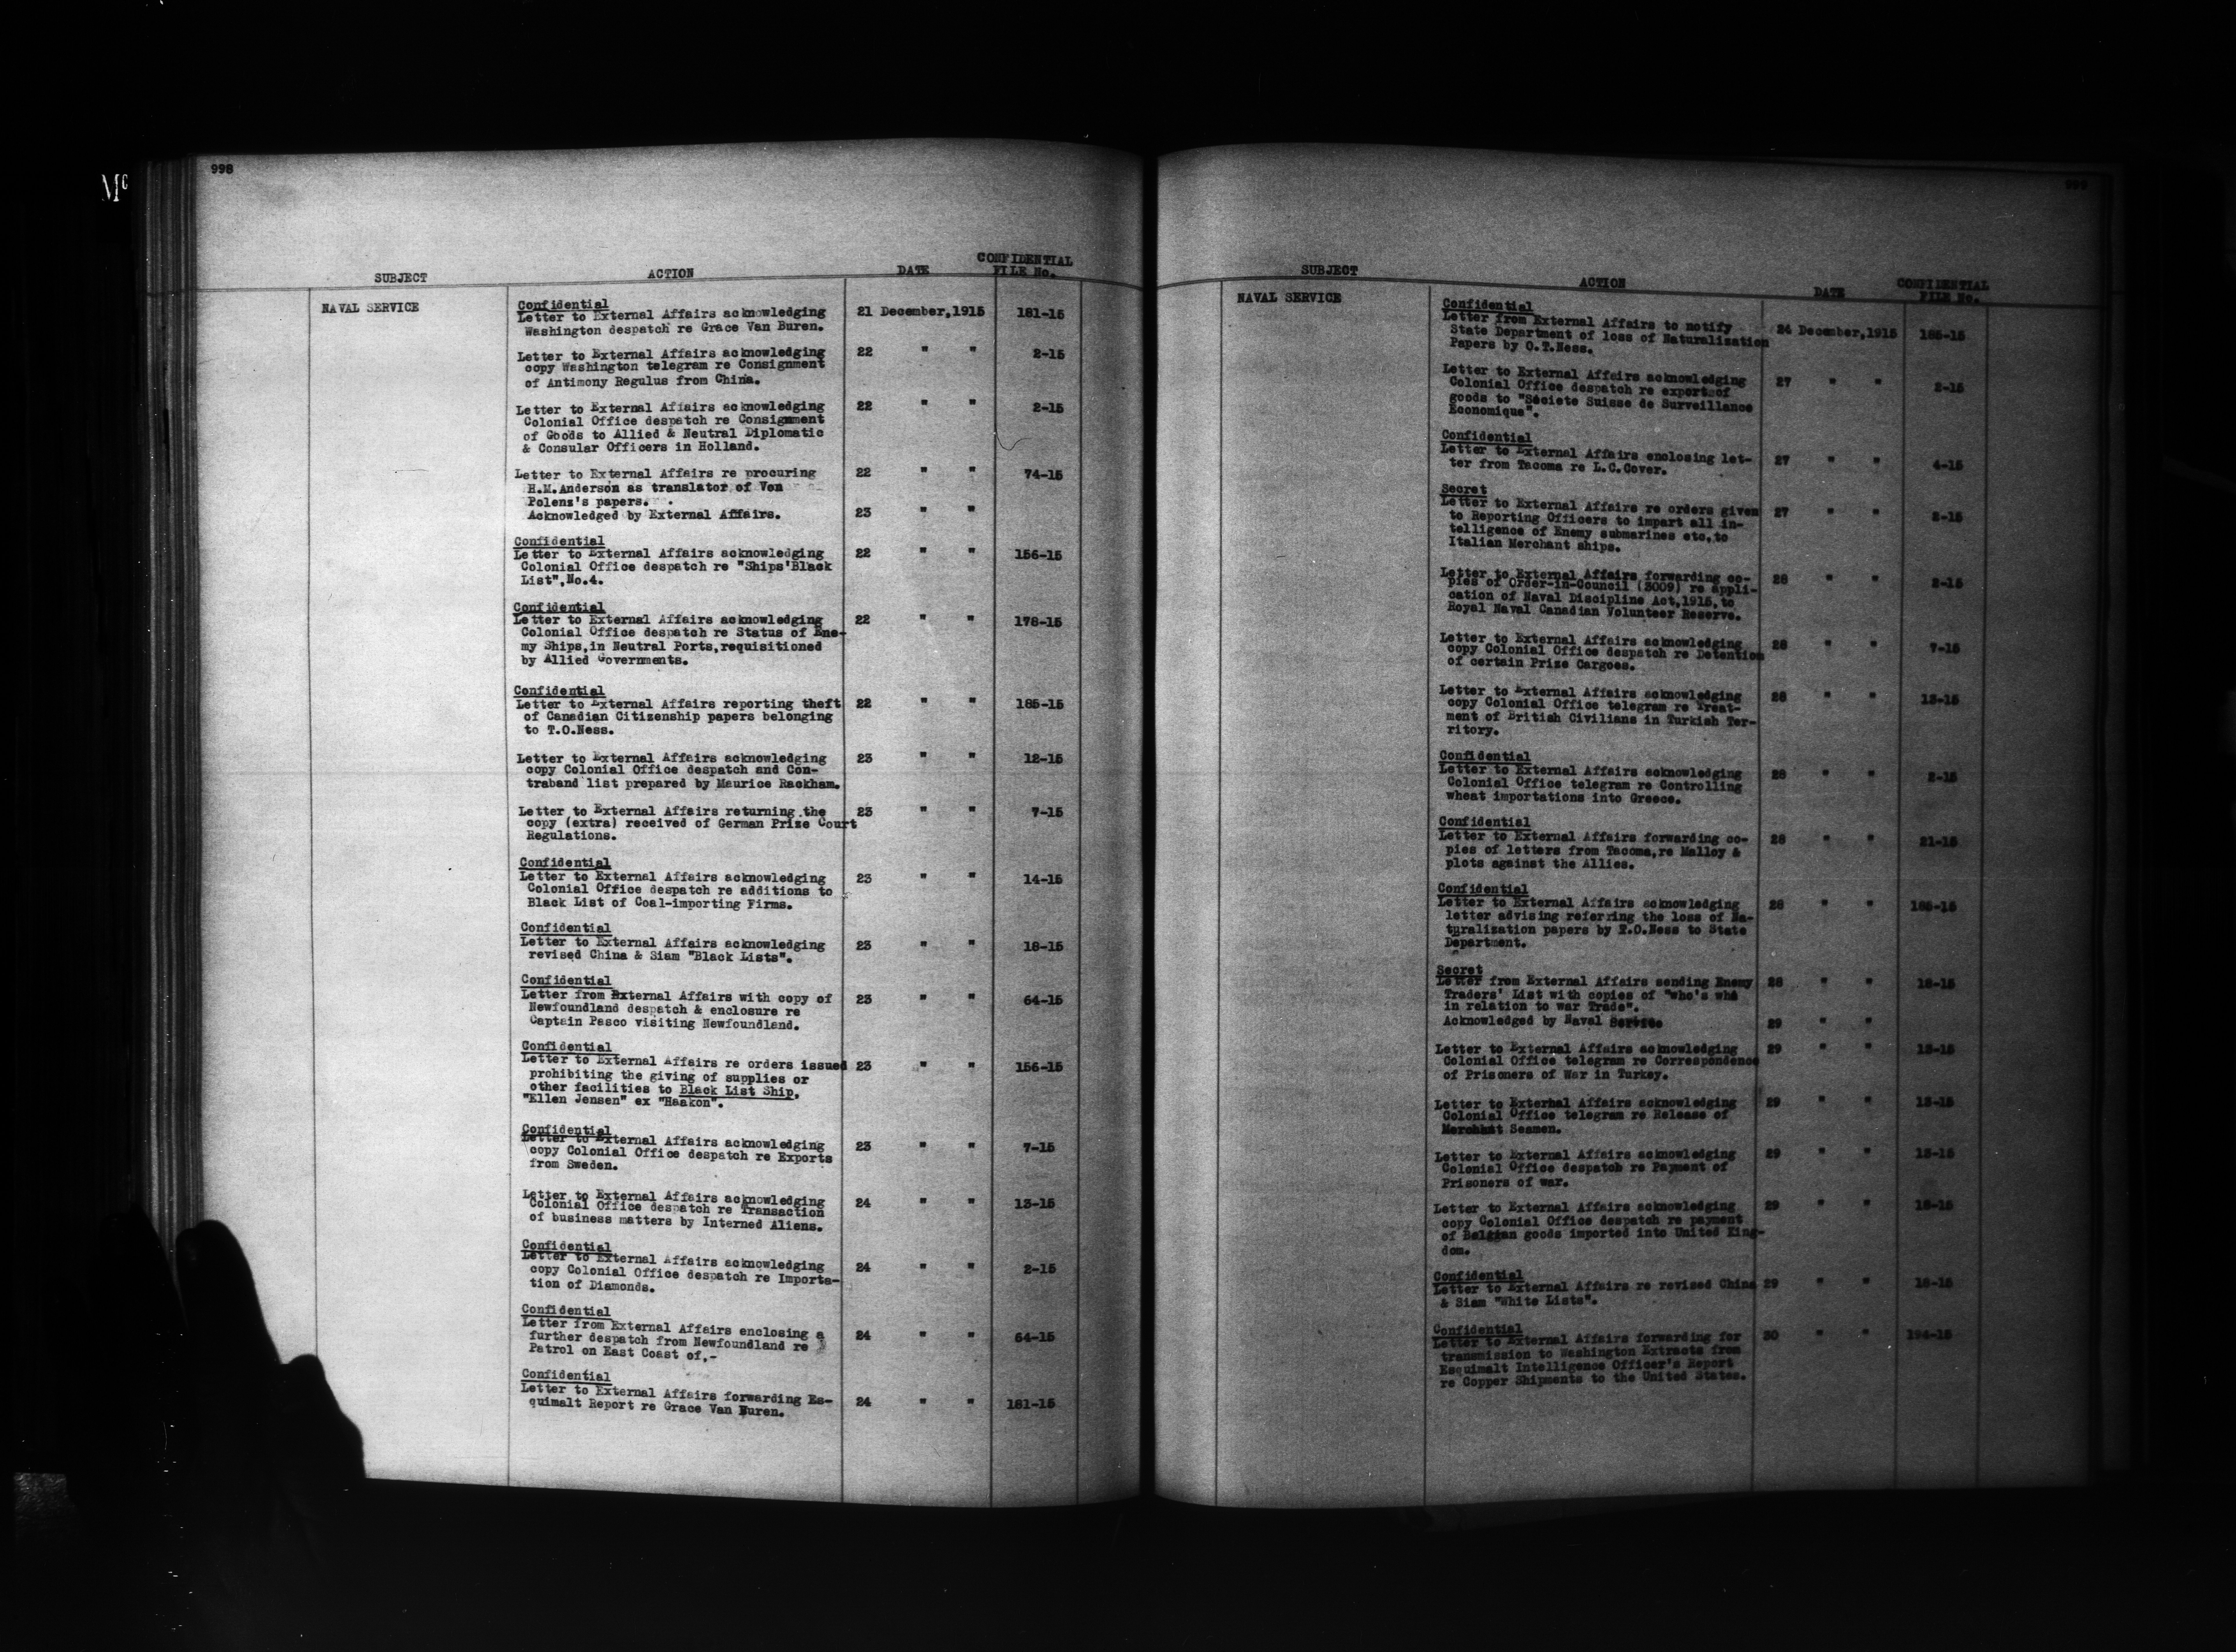 998
SUBJECT ACTION DATE CONFIDENTIAL FILE No.
NAVAL SERVICE
Confidential
Letter to External Affairs acknowledging 21 December,1915 181-15
Washington despatch re Grace Van Buren.
Letter to External Affairs acknowledging 22 " " 2-15
copy Washington telegram re Consignment
of Antimony Regulus from China.
Letter to External Affairs acknowledging 22 " " 2-15
Colonial Office despatch re Consignment
of Goods to Allied & Neutral Diplomatic
& Consular Officers in Holland.
Letter to External Affairs re procuring 22 " " 74-15
H.M.Anderson as translator of Von
Polenz's papers.
Acknowledged by External Affairs. 23 " "
Confidential
Letter to External Affairs acknowledging 22 " " 156-15
Colonial Office despatch re "Ships'Black
List",No.4.
Confidential
Letter to External Affairs acknowledging 22 " " 178-15
Colonial Office despatch re Status of Ene-
my Ships,in Neutral Ports,requisitioned
by Allied Governments.
Confidential
Letter to External Affairs reporting theft 22 " " 185-15
of Canadian Citizenship papers belonging
to T.O.Ness.
Letter to External Affairs acknowledging 23 " " 12-15
copy Colonial Office despatch and Con-
traband list prepared by Maurice Rackham.
Letter to External Affairs returning the 23 " " 7-15
copy (extra) received of German Prize Court
Regulations.
Confidential
Letter to External Affairs acknowledging 23 " " 14-15
Colonial Office despatch re additions to
Black List of Coal-importing Firms.
Confidential
Letter to External Affairs acknowledging 23 " " 18-15
revised China & Siam "Black Lists".
Confidential
Letter from External Affairs with copy of 23 " " 64-15
Newfoundland despatch & enclosure re
Captain Pasco visiting Newfoundland.
Confidential
Letter to External Affairs re orders issued 23 " " 156-15
prohibiting the giving of supplies or
other facilities to Black List Ship,
"Ellen Jensen" ex "Haakon".
Confidential
Letter to External Affairs acknowledging 23 " " 7-15
copy Colonial Office despatch re Exports
from Sweden.
Letter to External Affairs acknowledging 24 " " 13-15
Colonial Office despatch re Transaction
of business matters by Interned Aliens.
Confidential
Letter to External Affairs acknowledging 24 " " 2-15
copy Colonial Office despatch re Importa-
tion of Diamonds.
Confidential
Letter from External Affairs enclosing a 24 " " 64-15
further despatch from Newfoundland re
Patrol on East Coast of,-
Confidential
Letter to External Affairs forwarding Es- 24 " " 181-15
quimalt Report re Grace Van Buren.
999
SUBJECT ACTION DATE CONFIDENTIAL FILE No.
NAVAL SERVICE
Confidential
Letter from External Affairs to notify 24 December,1915 185-15
State Department of loss of Naturalization
Papers by O.T.Ness.
Letter to External Affairs acknowledging 27 " " 2-15
Colonial Office despatch re export of
goods to "Séciete Suisse de Surveillance
Economique".
Confidential
Letter to External Affairs enclosing let- 27 " " 4-15
ter from Tacoma re L.C.Cover.
Secret
Letter to External Affairs re orders given 27 " "
to Reporting Officers to impart all in-
telligence of Enemy submarines etc,to
Italian Merchant ships.
Letter to External Affairs forwarding co- 28 " "
pies of Order-in-Council (3009) re appli-
cation of Naval Discipline Act,1915,to
Royal Naval Canadian Volunteer Reserve.
Letter to External Affairs acknowledging 28 " " 7-15
copy Colonial Office despatch re Detention
of certain Prize Cargoes.
Letter to External Affairs acknowledging 28 " " 13-15
copy Colonial Office telegram re Treat-
ment of British Civilians in Turkish Ter-
ritory.
Confidential
Letter to External Affairs acknowledging 28 " " 2-15
Colonial Office telegram re Controlling
wheat importations into Greece.
Confidential
Letter to External Affairs forwarding co- 28 " " 21-15
pies of letters from Tacoma,re Malloy &
plots against the Allies.
Confidential
Letter to External Affairs acknowledging 28 " " 185-15
letter advising referring the loss of Na-
turalization papers by T.O.Ness to State
Department.
Secret
Letter from External Affairs sending Enemy 28 " " 18-15
Traders' List with copies of "who's who
in relation to war Trade".
Acknowledged by Naval Service 29 " "
Letter to External Affairs acknowledging 29 " " 13-15
Colonial Office telegram re Correspondence
of Prisoners of War in Turkey.
Letter to External Affairs acknowledging 29 " " 13-15
Colonial Office telegram re Release of
Merchant Seamen.
Letter to External Affairs acknowledging 29 " " 13-15
Colonial Office despatch re Payment of
Prisoners of war.
Letter to External Affairs acknowledging 29 " "
copy Colonial Office despatch re payment
of Belgian goods imported into United King-
dom.
Confidential
Letter to External Affairs re revised China 29 " " 18-15
& Siam "White Lists".
Confidential
Letter to External Affairs forwarding for 30 " " 194-15
transmission to Washington Extracts from
Esquimalt Intelligence Officer's Report
re Copper Shipments to the United States.